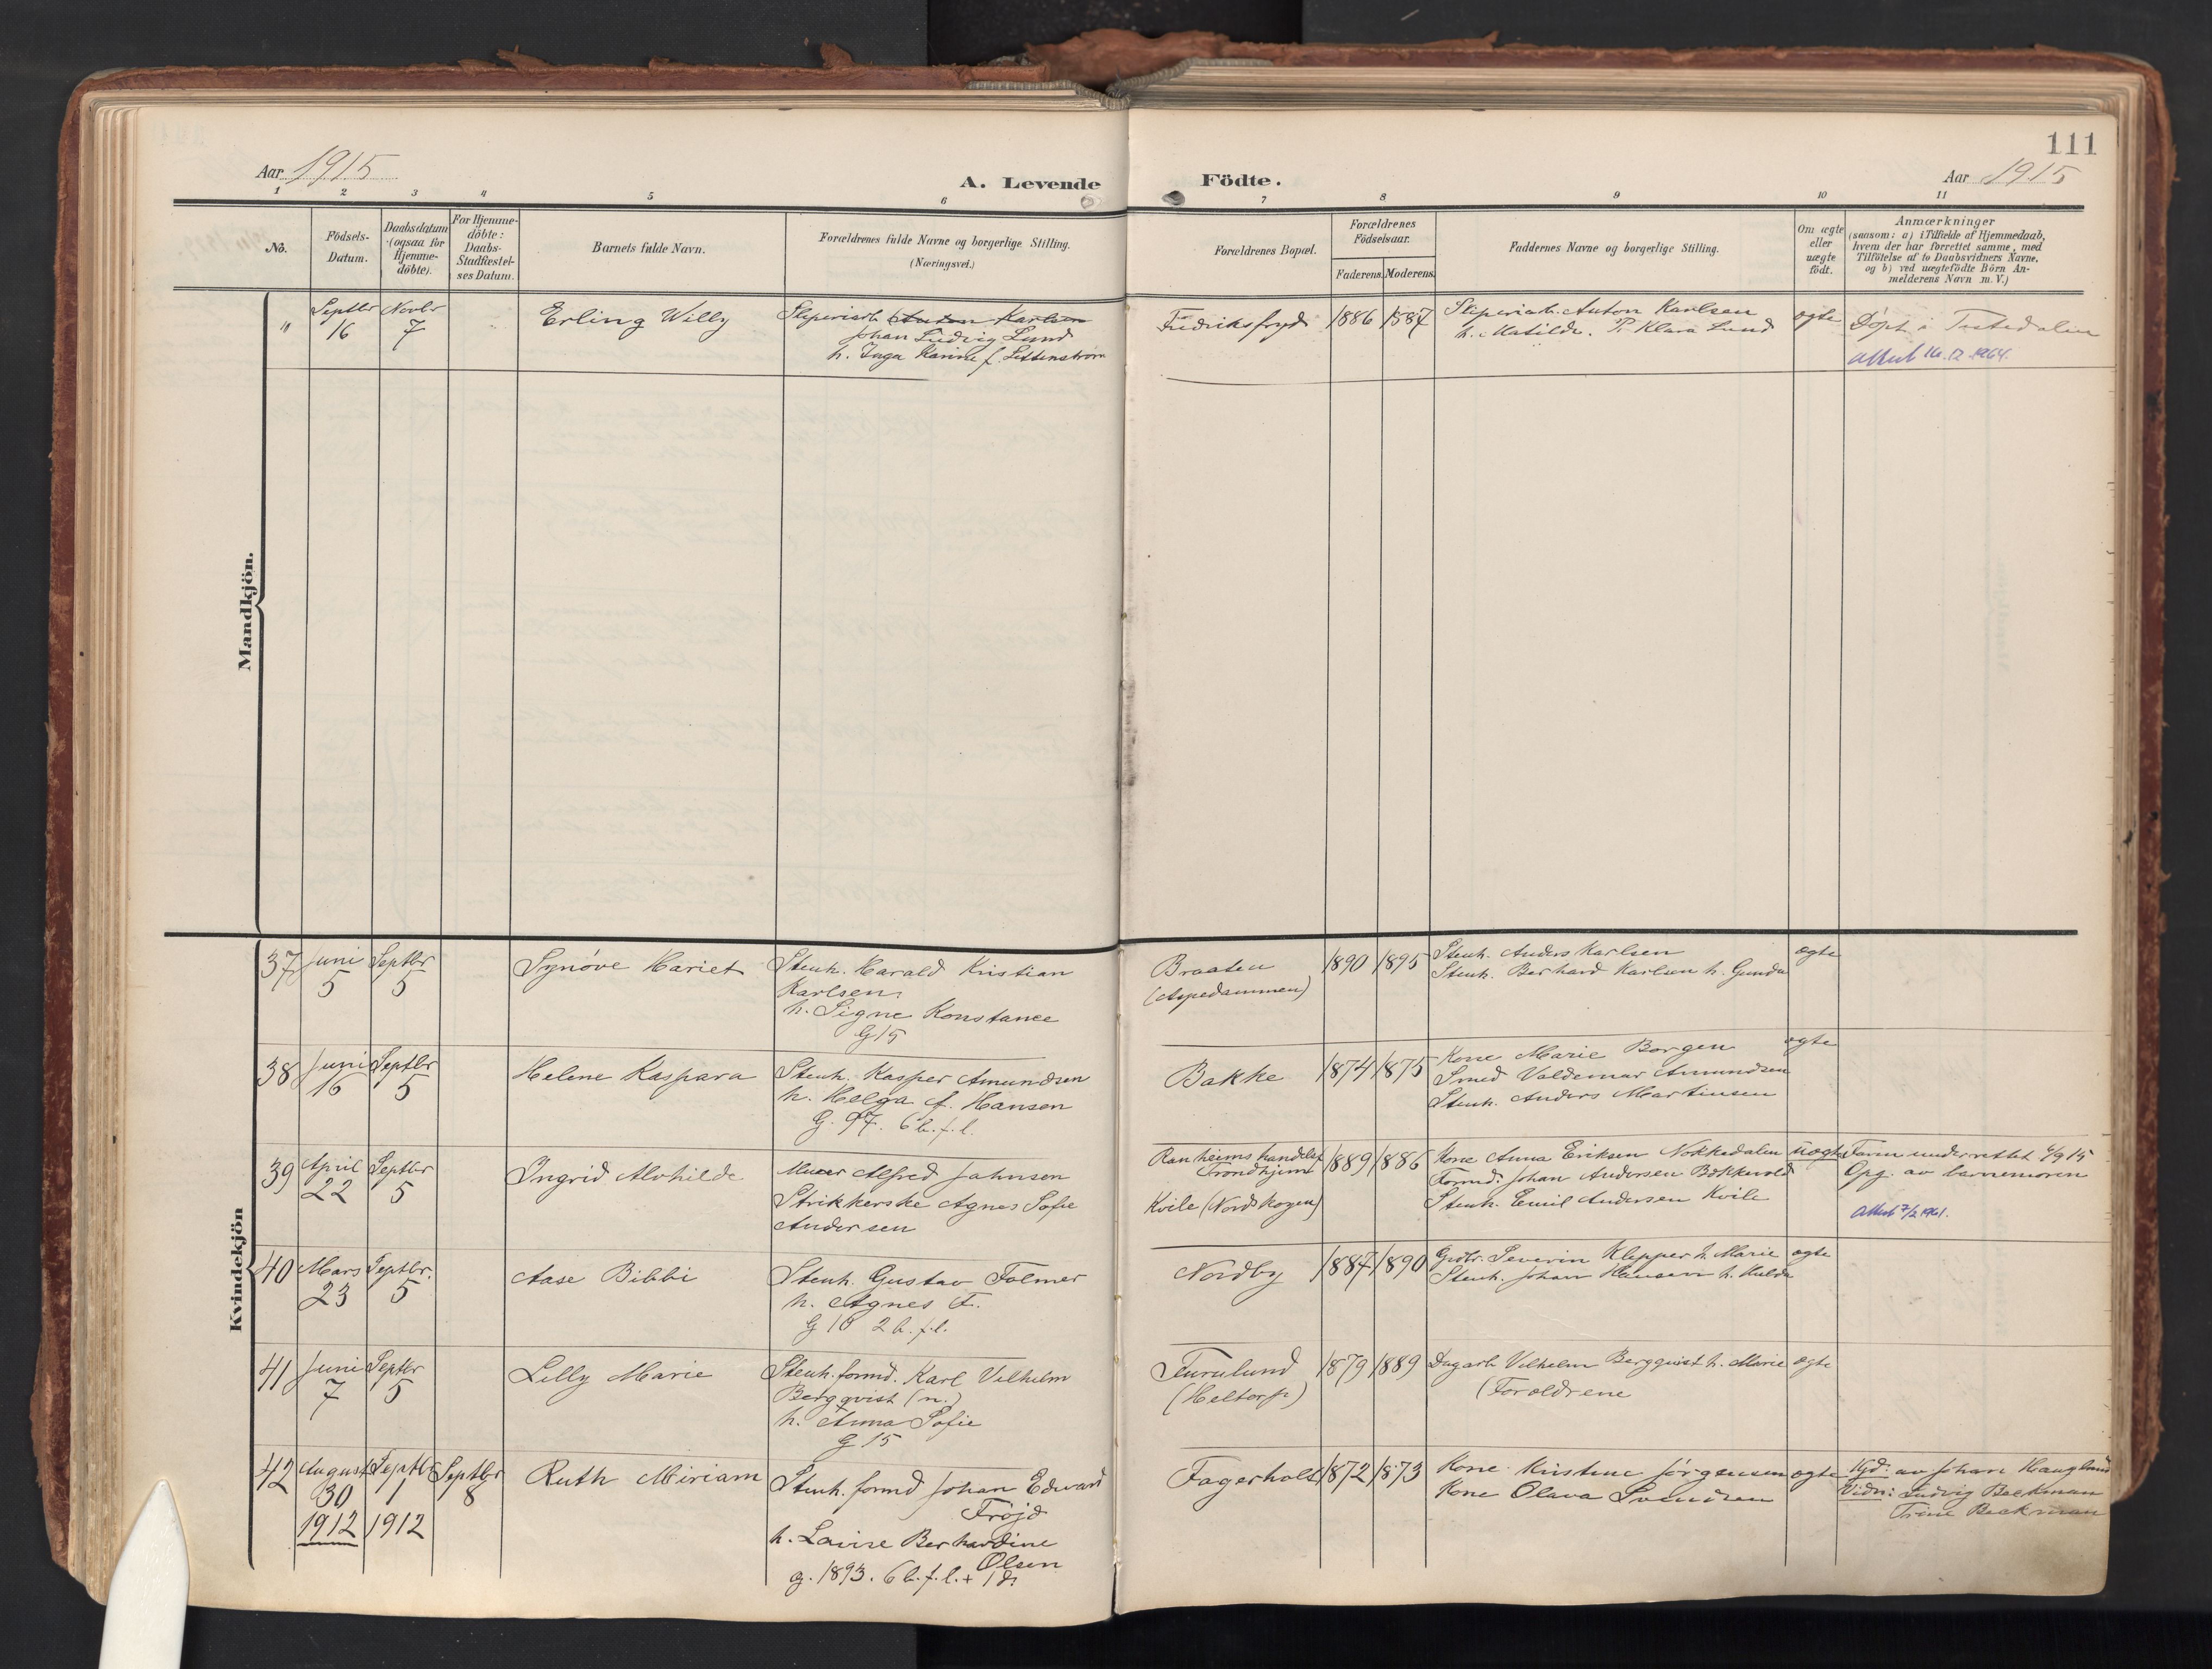 111
Aar 1915
A. Levende Födte.
Aar 1915
1 2 3 4 5 6 7 8 9 10 11
No.
Födsels-
Datum.
Daabsdatum
(ogsaa for
Hjemme-
döbte).
For Hjemme-
döbte:
Daabs-
Stadfæstel-
ses Datum.
Barnets fulde Navn.
Forældrenes fulde Navne og borgerlige Stilling.
(Næringsvei.)
Forældrenes Bopæl.
Forældrenes
Födselsaar.
Faderens. Moderens.
Faddernes Navne og borgerlige Stilling.
Om ægte
eller
uægte
födt.
Anmærkninger
(saasom: a) i Tilfælde af Hjemmedaab,
hvem der har forrettet samme, med
Tilföielse af to Daabsvidners Navne,
og b) ved uægtefödte Börn An-
melderens Navn m. V.)
Mandkjön.
"
Septbr
16
Novbr
7
Erling Willy
Sliperiarb. Anton Karlsen
Johan Ludvig Lund
h. Inga Karine f. Settenstrøm
Fredriksfryd
1886
1887
Sliperiarb. Anton Karlsen
h. Matilde. P. Klara Lund
ægte
Døpt i Tistedalen
Attest 16.12.1964.
Kvindekjön
37
Juni
5
Septbr
5
Synøve Hariet
Stenh. Harald Kristian
Karlsen
h. Signe Konstance
G 15
Braaten
(Aspedammen)
1890
1895
Stenh. Anders Karlsen
Stenh. Berhard Karlsen h. Gunda
ægte
38
Juni
16
Septbr
5
Helene Kaspara
Stenh. Kasper Amundsen
h. Helga f. Hansen
G. 97. 6 b. f. l.
Bakke
1874
1875
Kone Marie Borgen
Smed Valdemar Amundsen
Stenh. Anders Martinsen
ægte
39
April
22
Septbr
5
Ingrid Alvhilde
Murer Alfred Johnsen
Strikkerske Agnes Sofie
Andersen
Ranheims handelsf
Trondhjem
Kvile (Nordskogen)
1889
1886
Kone Anna Eriksen Nokkedalen
Formd. Johan Andersen Bokkerød
Stenh. Emil Andersen Kvile
uægte
Faren underrettet 6/9 15
Opg. av barnemoren
Attest 7/2 1961.
40
Mars
23
Septbr.
5
Aase Bibbi
Stenh. Gustav Folmer
h. Agnes F.
G 10 2 b. f. l.
Nordby
1887
1890
Grdbr. Severin Klepper h. Marie
Stenh. Johan Hansen h. Hulda
ægte
41
Juni
7
Septbr
5
Lilly Marie
Stenh. formd. Karl Vilhelm
Bergqvist (m.)
h. Anna Sofie
G 15
Furulund
(Heltorp)
1879
1889
Dagarb. Vilhelm Bergqvist h. Marie
(Forældrene
ægte
42
August
30
1912
Septbr
1
1912
Septbr
8
Ruth Miriam
Stenh. formd Johan Edvard
Frøjd
h. Lovise Berhardine
Olsen
g. 1893. 6 b. f. l. + 1 d.
Fagerholt
1872
1873
Kone Kristine Jørgensen
Kone Olava Svendsen
ægte
Hjd: av Johan Haugland
Vidn: Ludvig Beckman
Trine Beckman